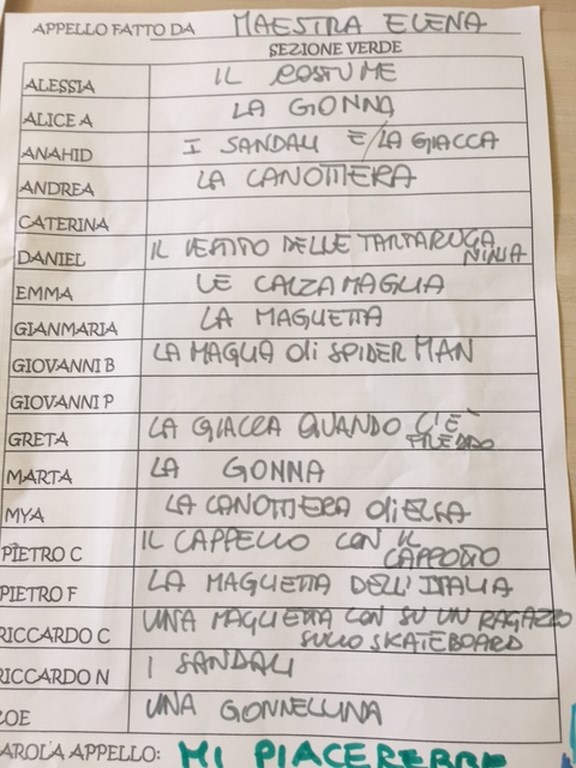 APPELLO FATTO DA MAESTRA ELENA
SEZIONE VERDE
ALESSIA IL COSTUME
ALICE A LA GONNA
ANAHID I SANDALI E/LA GIACCA
ANDREA LA CANOTTIERA
CATERINA
DANIEL IL VESTITO DELLE TARTARUGA
NINJA
EMMA LE CALZAMAGLIA
GIANMARIA LA MAGLIETTA
GIOVANNI B LA MAGLIA di SPIDER MAN
GIOVANNI P
GRETA LA GIACCA QUANDO C'È
FREDDO
MARTA LA GONNA
MYA LA CANOTTIERA di ELSA
PIETRO C IL CAPPELLO CON IL
CAPPOTTO
PIETRO F LA MAGLIETTA DELL'ITALIA
RICCARDO C UNA MAGLIETTA CON SU UN RAGAZZO
SULLO SKATEBOARD
RICCARDO N I SANDALI
ZOE UNA GONNELLINA
AROLA APPELLO: MI PIACEREBBE